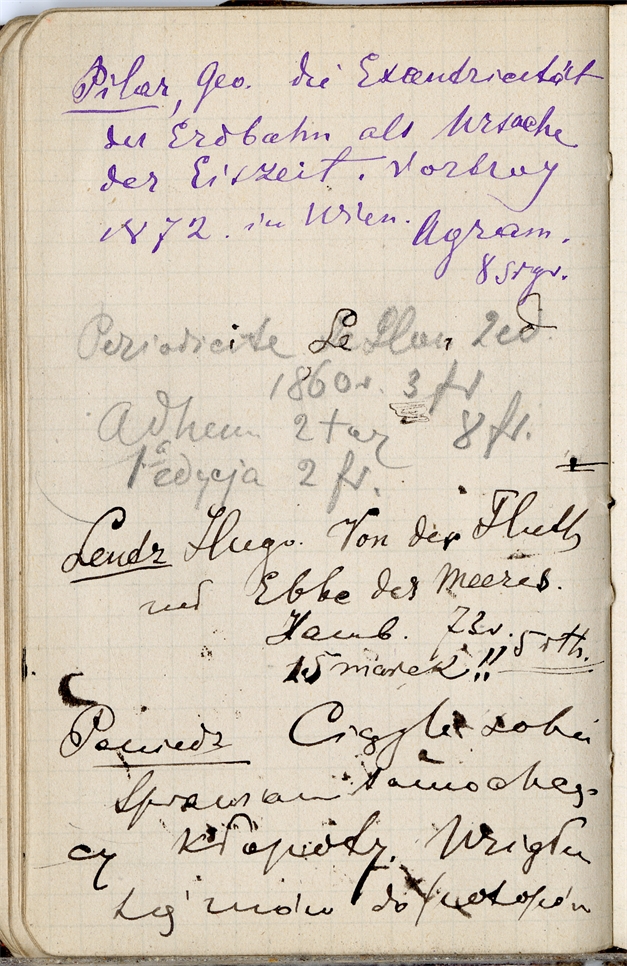 Pilar, Geo. die Excentricität
der Erdbahn als Ursache
der Eiszeit. Vortrag
1872. in Wien. Agram.
8 srgr.
Periodicite Le Hon 2ed
1860r. 3 fr
Adhem 2 8 fr.
1a edycja 2 fr.
Lentz Hugo. Von der Fluth
und Ebbe des Meeres.
Hamb. 73r. 5 rth.
15 marek!!
Poniedz Ciągle sobie
sprawiam samochcą-
cy kłopoty. Wziąłem
się znów do